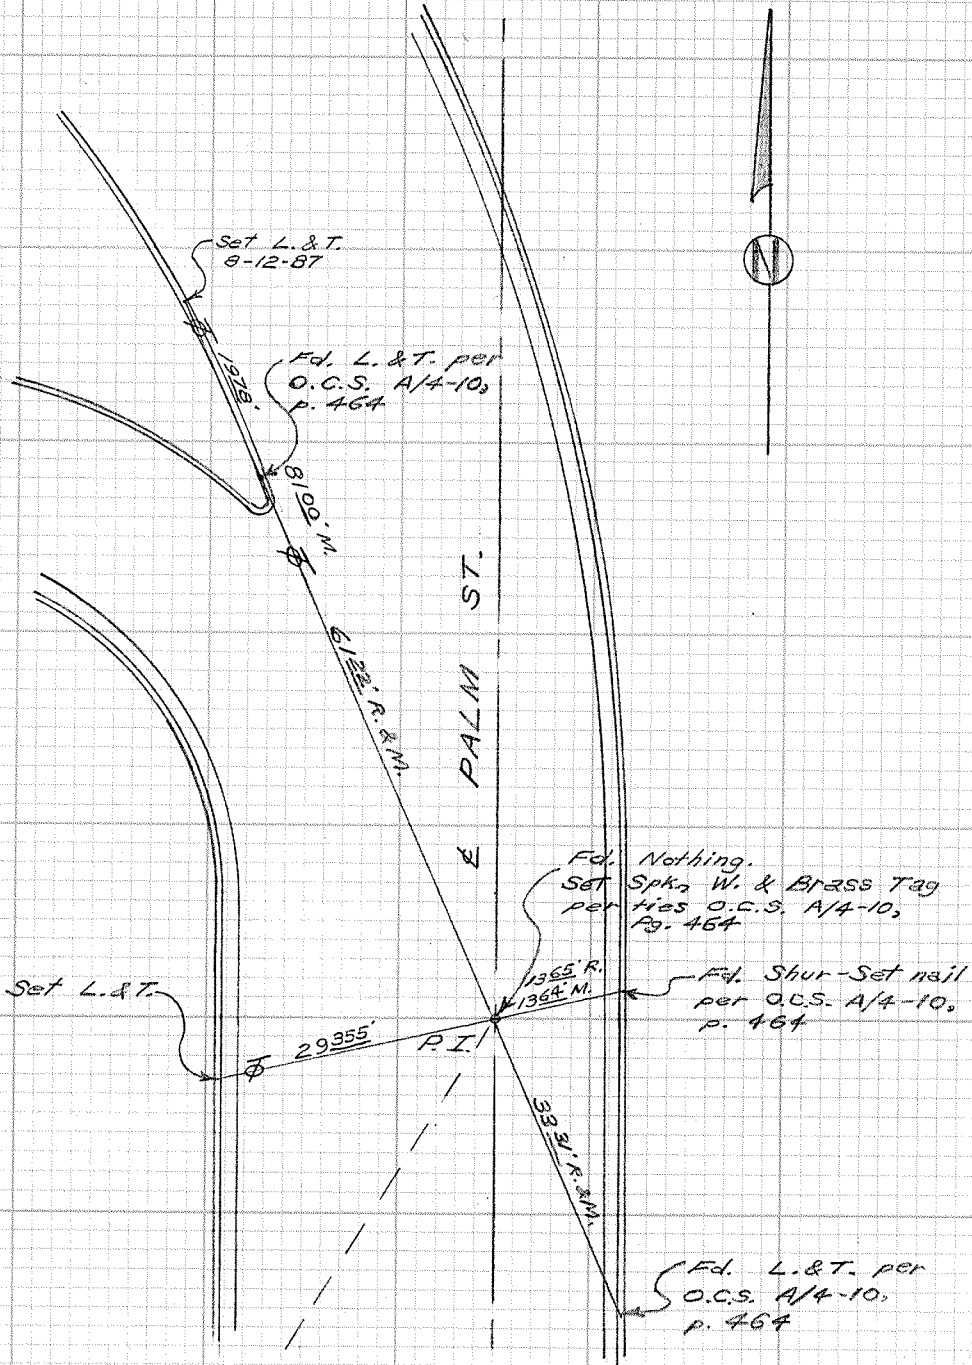 N
Set L. & T.
8-12-87
19.78'
Fd. L. & T. per
O.C.S. A/4-10,
p. 464
81.00' M.
61.22' R. & M.
℄ PALM ST.
Fd. Nothing.
Set Spk, W. & Brass Tag
per ties O.C.S. A/4-10,
Pg. 464
13.65' R.
13.64' M.
Fd. Shur-Set nail
per O.C.S. A/4-10,
p. 464
Set L. & T.
29.355'
P.I.
33.31' R. & M.
Fd. L. & T. per
O.C.S. A/4-10,
p. 464